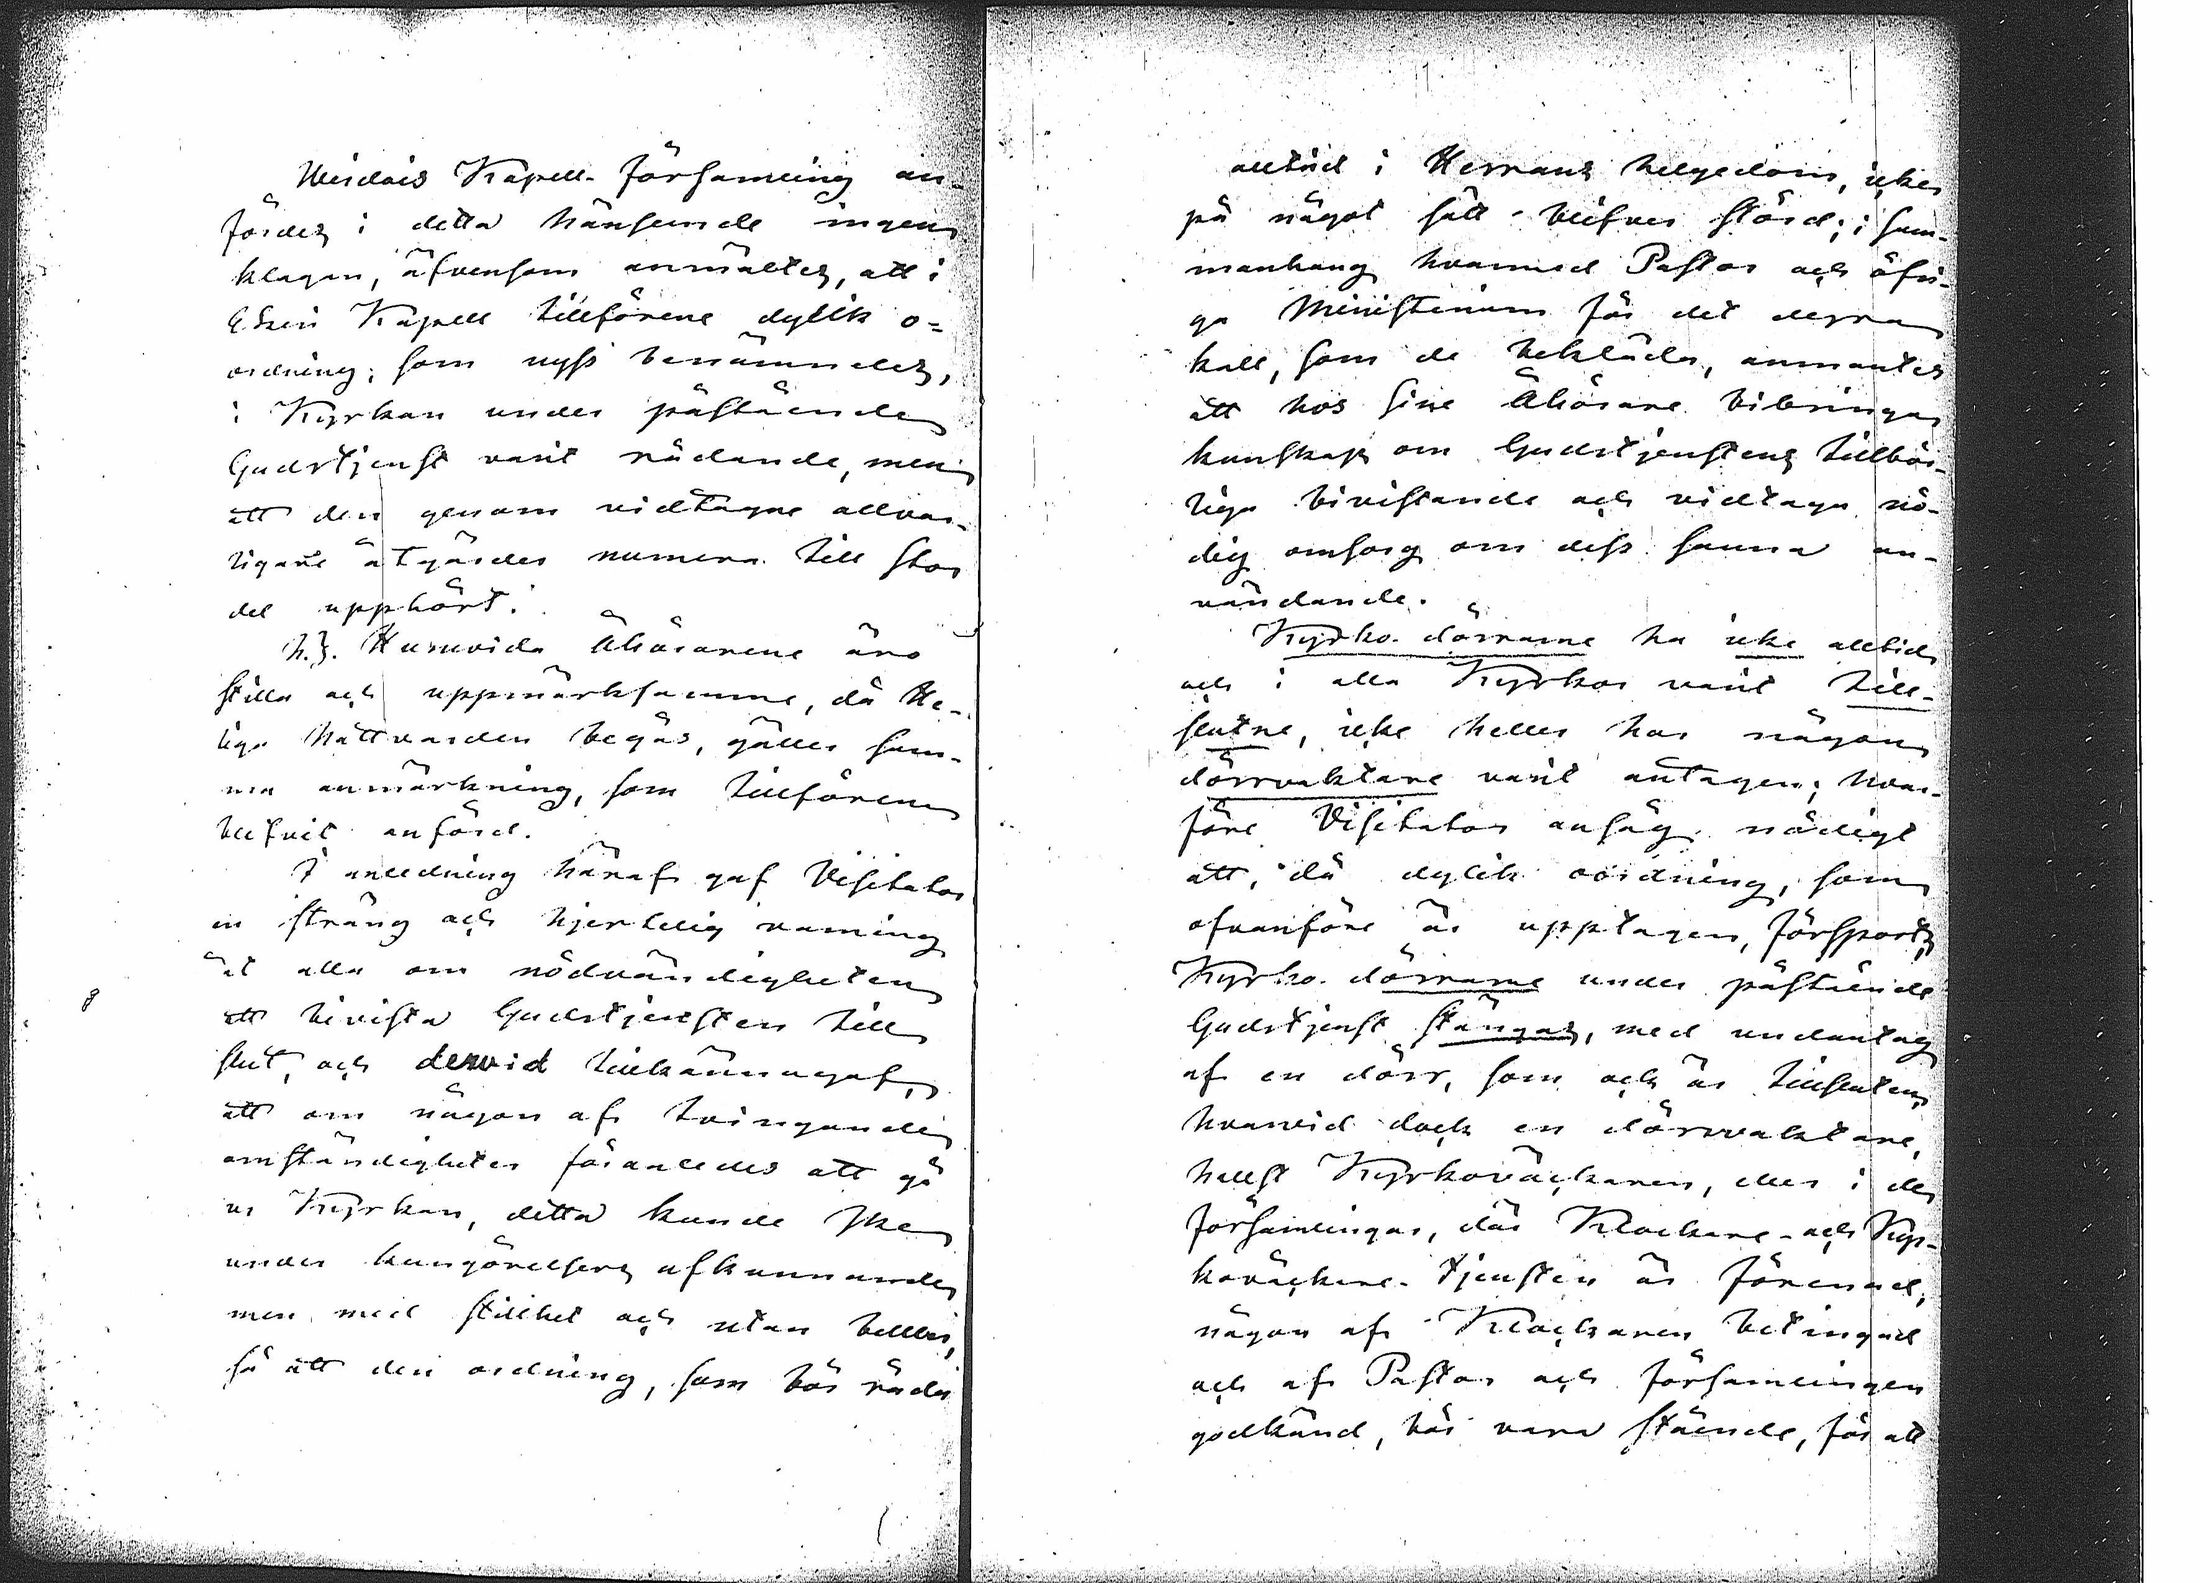 Kapell- församling an-
fördes i detta hänseende ingen
klagan, äfvensom anmältes, att i
Kapell tillförene dylik o-
ordning, som nyss benämndes,
i Kyrkan under påstående
Gudstjenst varit rådande, men
att den genom vidtagne allvar-
ligare åtgärder numera till stor
del upphört.
h.). Huruvida Åhörarene äro
stilla och uppmärksamme, då He-
liga Nattvarden begås, gäller sam-
ma anmärkning, som tillförene
blifvit anförd.
I anledning häraf gaf Visitator
en sträng och hjertelig varning
åt alla om nödvändigheten
att bivista Gudstjensten till
slut, och dervid tillkännagaf,
att om någon af tvingande
omständigheter föranledes att gå
ur Kyrkan, detta kunde ske
under kungörelsers afkunnande
men med stillhet och utan buller,
så att den ordning, som bör råda
alltid i Herrans helgedom, icke
på något sätt blifver störd; i sam-
manhang hvarmed Pastor och öfri-
ga Ministerium för det dyra
kall, som de bekläda, anmantes
att hos sine Åhörare bibringa
kunskap om Gudstjenstens tillbör-
liga bivistande och vidtaga nö-
dig omsorg om dess sanna an-
vändande.
Kyrko- dörrarne ha icke alltid
och i alla Kyrkor varit till-
slutne, icke heller har någon
dörrvaktare varit antagen; hvar-
före Visitator ansåg nödigt
att, då dylik oordning, som
ofvanföre är upptagen, försports,
Kyrko- dörrarne under påstående
Gudstjenst stängas, med undantag
af en dörr, som och är tillsluten,
hvarvid dock en dörrvaktare,
helst Kyrkoväckaren, eller i de
församlingar, där Klockare- och Kyr-
koväckare- tjensten är förenad,
någon af Klockaren betingad
och af Pastor och församlingen
godkänd, bör vara stående, för att